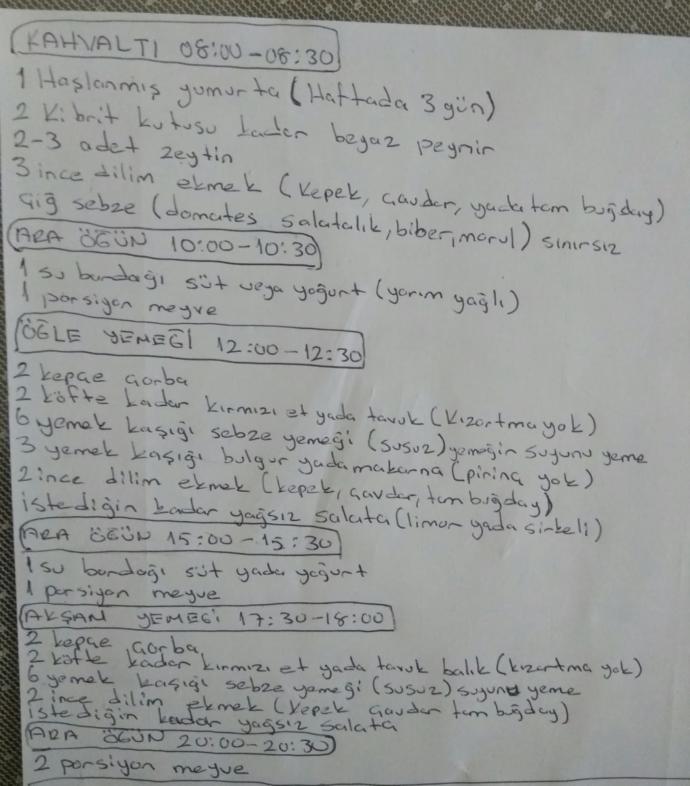 KAHVALTI 08:00-08:30
1 Haşlanmış yumurta (Haftada 3 gün)
2 Kibrit kutusu kadar beyaz peynir
2-3 adet zeytin
3 ince dilim ekmek (kepek, çavdar, yada tam buğday)
çiğ sebze (domates salatalık, biber, marul) sınırsız
ARA ÖĞÜN 10:00-10:30
1 su bardağı süt veya yoğurt (yarım yağlı)
1 porsiyon meyve
ÖĞLE YEMEĞİ 12:00-12:30
2 kepçe çorba
2 köfte kadar kırmızı et yada tavuk (kızartma yok)
6 yemek kaşığı sebze yemeği (susuz) yemeğin suyunu yeme
3 yemek kaşığı bulgur yada makarna (pirinç yok)
2 ince dilim ekmek (kepek, çavdar, tam buğday)
istediğin kadar yağsız salata (limon yada sirkeli)
ARA ÖĞÜN 15:00-15:30
1 su bardağı süt yada yoğurt
1 porsiyon meyve
AKŞAN YEMEĞİ 17:30-18:00
2 kepçe çorba
2 köfte kadar kırmızı et yada tavuk balık (kızartma yok)
6 yemek kaşığı sebze yemeği (susuz) suyunu yeme
2 ince dilim ekmek (kepek çavdar tam buğday)
istediğin kadar yağsız salata
ARA ÖĞÜN 20:00-20:30
2 porsiyon meyve